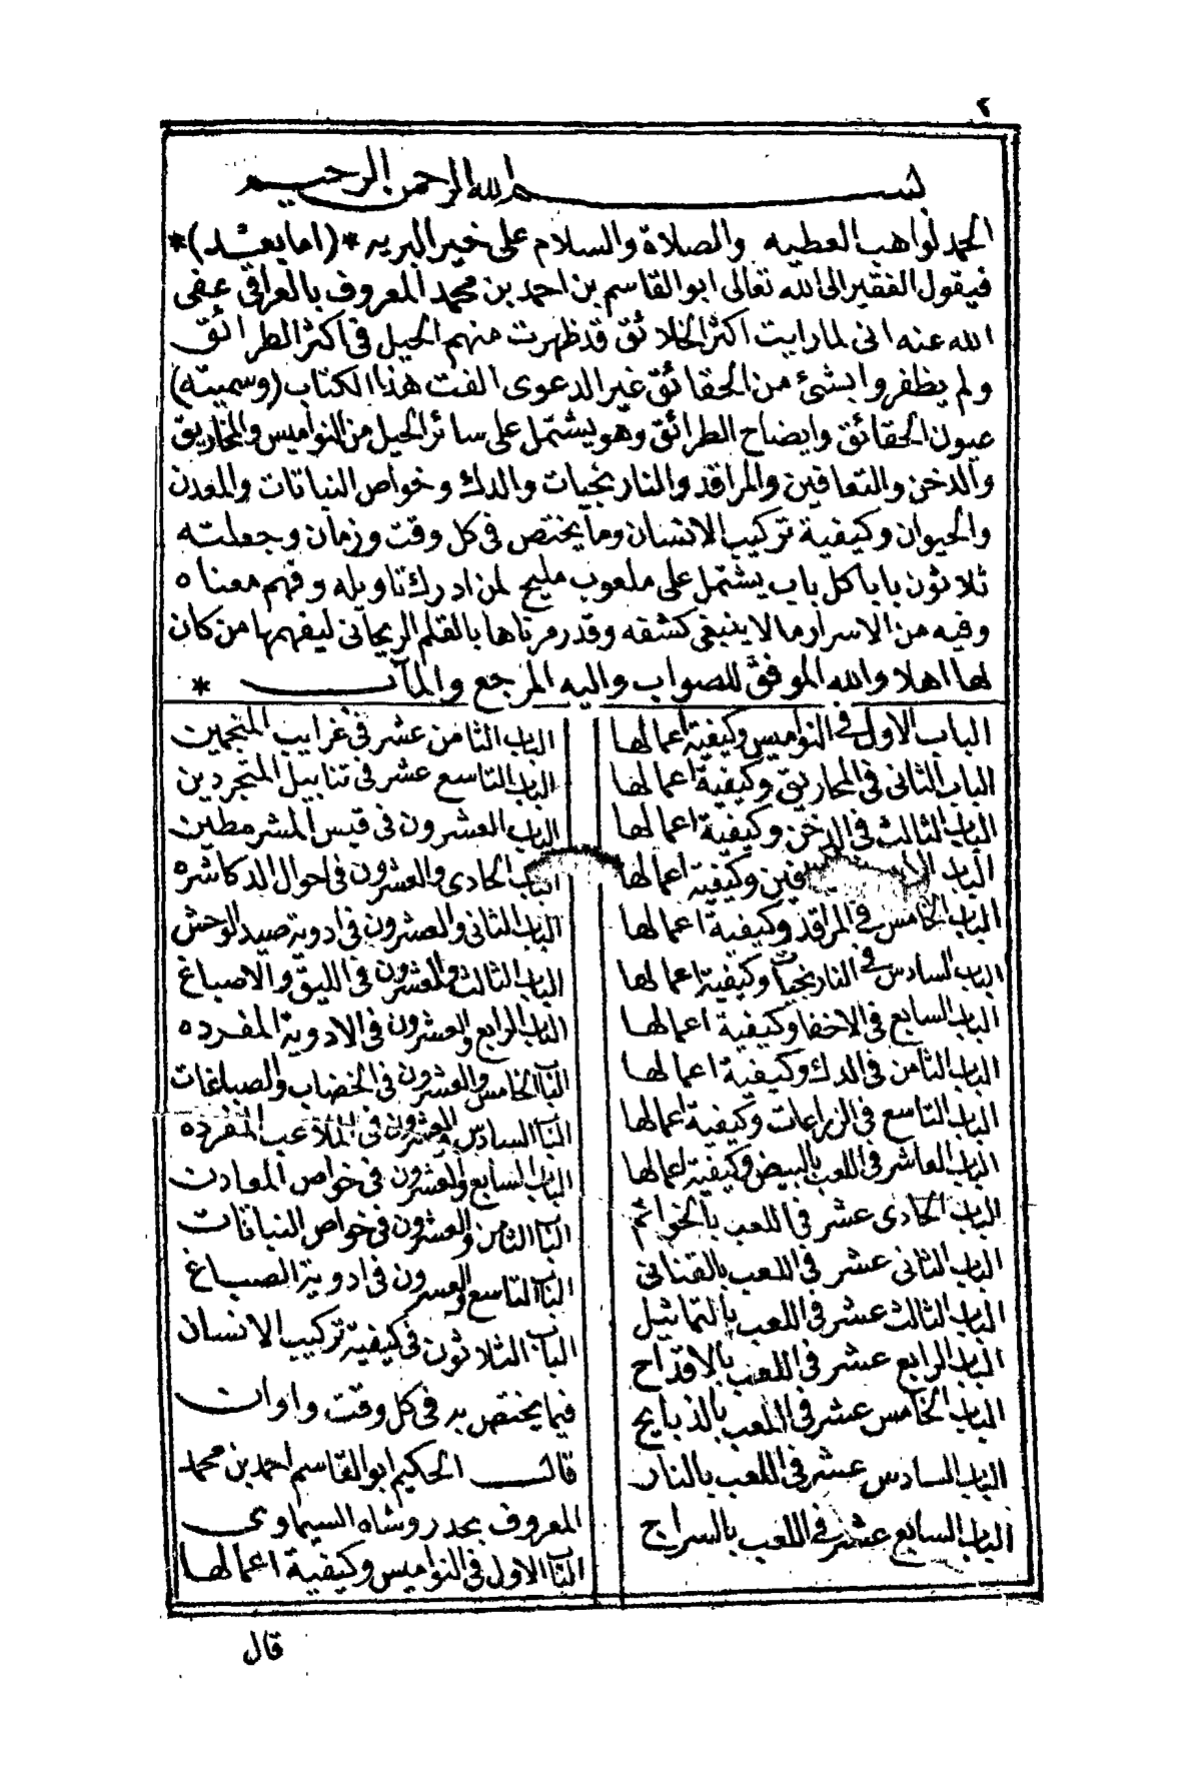 ٢
بسم الله الرحمن الرحيم
الحمد لواهب العطيه والصلاة والسلام على خير البريه * (اما بعد) *
فيقول الفقير الى الله تعالى ابو القاسم بن احمد بن محمد المعروف بالعراقى عفى
الله عنه انى لما رايت اكثر الخلائق قد ظهرت منهم الحيل فى اكثر الطرائق
ولم يظفروا بشئ من الحقائق غير الدعوى الفت هذا الكتاب (وسميته)
عيون الحقائق وايضاح الطرائق وهو يشتمل على سائر الحيل من النواميس والمخاريق
والدخن والتعافين والمراقد والنارنجيات والدك وخواص النباتات والمعدن
والحيوان وكيفية تركيب الانسان وما يختص فى كل وقت وزمان وجعلته
ثلاثون بابا كل باب يشتمل على ملعوب مليح لمن ادرك تاويله وفهم معناه
وفيه من الاسرار ما لا ينبغى كشفه وقد رمزناها بالقلم الريحانى ليفهمها من كان
لها اهلا والله الموفق للصواب واليه المرجع والمآب *
الباب الاول فى النواميس وكيفية اعمالها
الباب الثانى فى المخاريق وكيفية اعمالها
الباب الثالث فى الدخن وكيفية اعمالها
الباب وكيفية اعمالها
الباب الخامس فى المراقد وكيفية اعمالها
الباب السادس فى النارنجيات وكيفية اعمالها
الباب السابع فى الاخفا وكيفية اعمالها
الباب الثامن فى الدك وكيفية اعمالها
الباب التاسع فى الزراعات وكيفية اعمالها
الباب العاشر فى اللعب بالبيض وكيفية اعمالها
الباب الحادى عشر فى اللعب بالخواتم
الباب الثانى عشر فى اللعب بالقنانى
الباب الثالث عشر فى اللعب بالتماثيل
الباب الرابع عشر فى اللعب بالاقداح
الباب الخامس عشر فى اللعب بالذبايح
الباب السادس عشر فى اللعب بالنار
الباب السابع عشر فى اللعب بالسراج
الباب الثامن عشر فى غرايب المنجمين
الباب التاسع عشر فى تنابيل المتجردين
الباب العشرون فى قيس المشرمطين
الباب الحادى والعشرون فى احوال الدكاشره
الباب الثانى والعشرون فى ادوية صيد الوحش
الباب الثالث والعشرون فى الليق والاصباغ
الباب الرابع والعشرون فى الادوية المفرده
الباب الخامس والعشرون فى الخضاب والصباغات
الباب السادس والعشرون فى الملاعب المفرده
الباب السابع والعشرون فى خواص المعادن
الباب الثامن والعشرون فى خواص النباتات
الباب التاسع والعشرون فى ادوية الصباغ
الباب الثلاثون فى كيفية تركيب الانسان
فيما يختص به فى كل وقت واوان
قال الحكيم ابو القاسم احمد بن محمد
المعروف بجدروشاه السيماوى
الباب الاول فى النواميس وكيفية اعمالها
قال